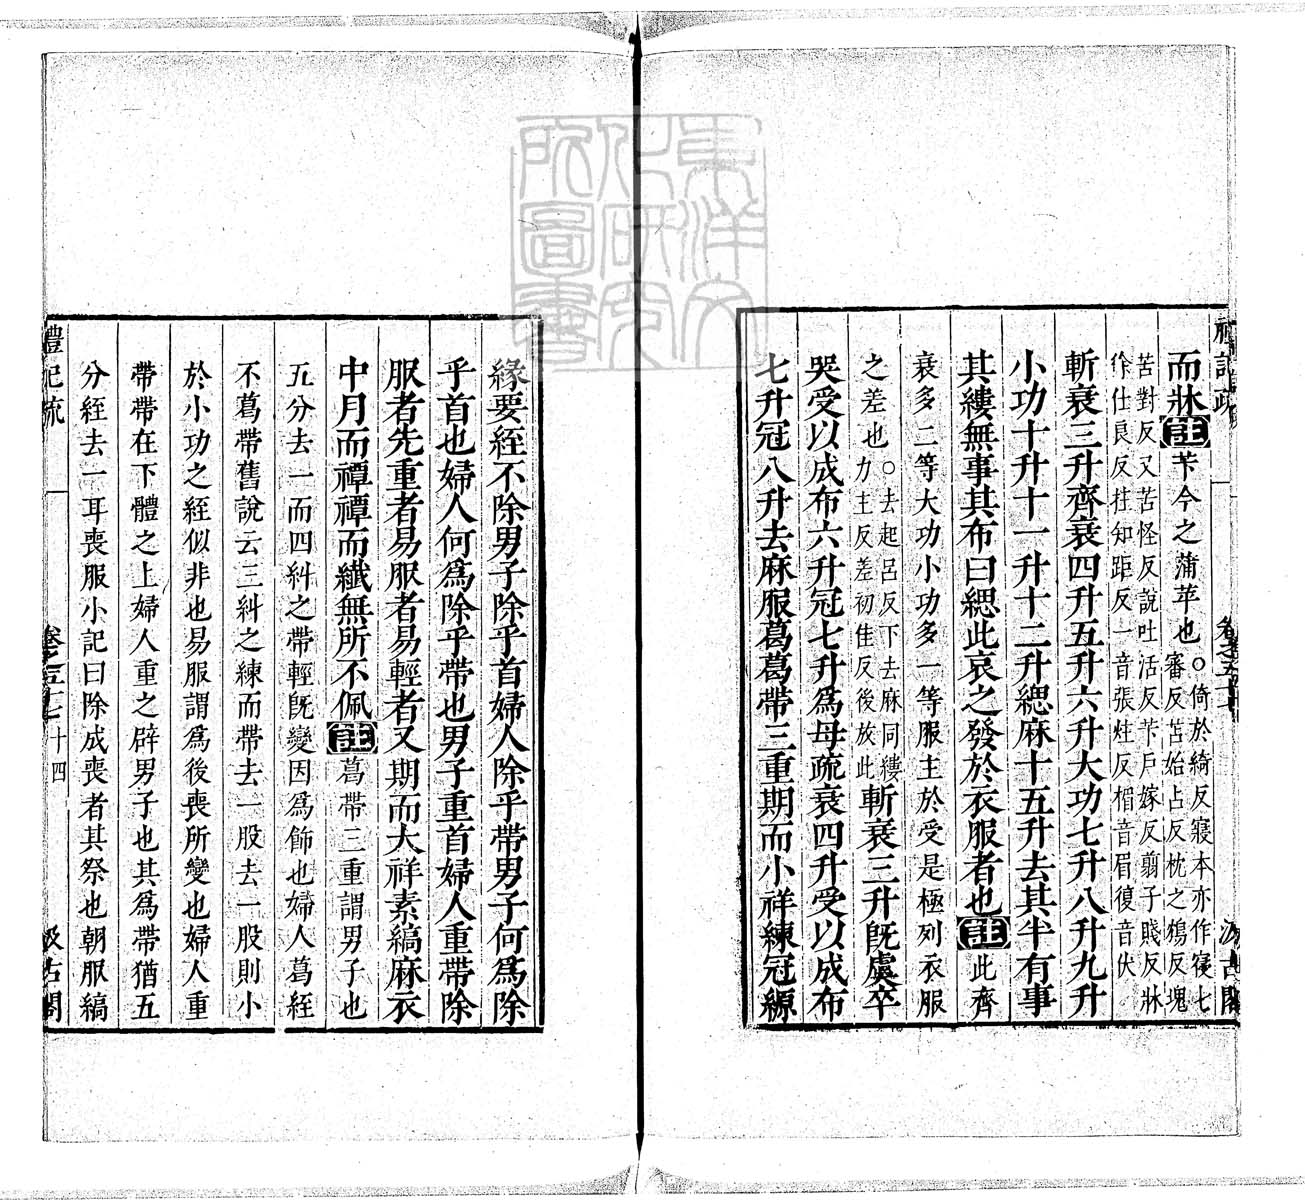 禮記疏
卷之五十七
汲古閣
而牀註苄今之蒲苹也○倚於綺反寢本亦作寑七
審反苫始占反枕之鴆反塊
苦對反又苦怪反說吐活反苄戶嫁反翦子賤反牀
徐仕良反柱知距反一音張炷反楣音眉復音伏
斬衰三升齊衰四升五升六升大功七升八升九升
小功十升十一升十二升緦麻十五升去其半有事
其縷無事其布曰緦此哀之發於衣服者也註此齊
衰多二等大功小功多一等服主於受是極列衣服
之差也○去起呂反下去麻同縷
力主反差初佳反後放此斬衰三升旣虞卒
哭受以成布六升冠七升爲母疏衰四升受以成布
七升冠八升去麻服葛葛帶三重期而小祥練冠縓
緣要絰不除男子除乎首婦人除乎帶男子何爲除
乎首也婦人何爲除乎帶也男子重首婦人重帶除
服者先重者易服者易輕者又期而大祥素縞麻衣
中月而禫禫而纖無所不佩註葛帶三重謂男子也
五分去一而四糾之帶輕旣變因爲飾也婦人葛絰
不葛帶舊說云三糾之練而帶去一股去一股則小
於小功之絰似非也易服謂爲後喪所變也婦人重
帶帶在下體之上婦人重之辟男子也其爲帶猶五
分絰去一耳喪服小記曰除成喪者其祭也朝服縞
禮記疏
十四
汲古閣
東洋文化研究所圖書